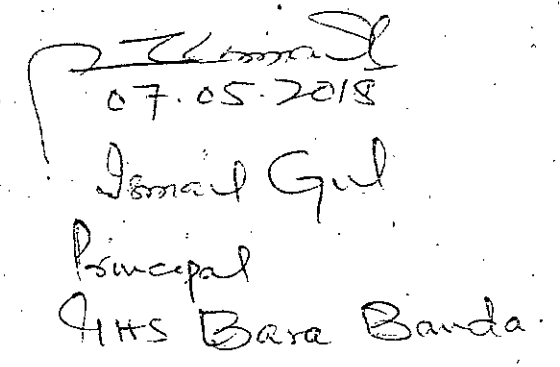 07.05.2018
Ismail Gul
Principal
GHS Bara Banda.